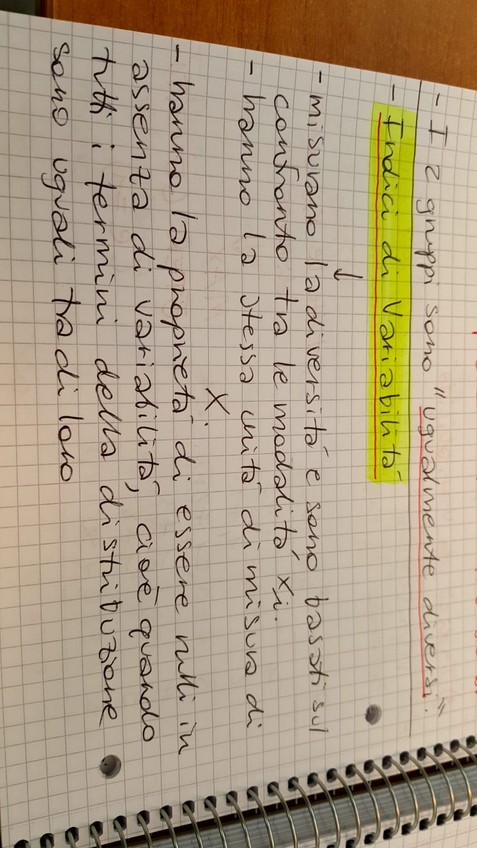 - I 2 gruppi sono "ugualmente diversi".
- Indici di Variabilità
↓
- misurano la diversità e sono basati sul
confronto tra le modalità xi.
- hanno la stessa unità di misura di
X
- hanno la proprietà di essere nulli in
assenza di variabilità, cioè quando
tutti i termini della distribuzione
sono uguali tra di loro